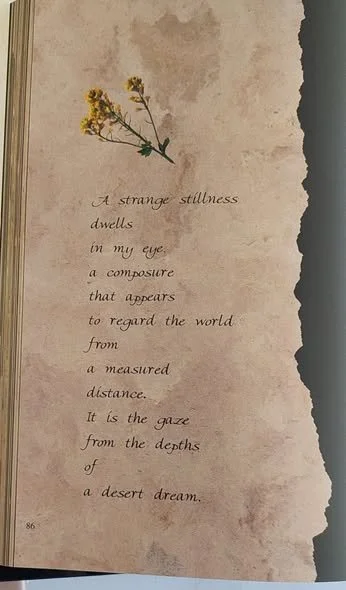 A strange stillness
dwells
in my eye.
a composure
that appears
to regard the world
from
a measured
distance.
It is the gaze
from the depths
of
a desert dream.
86